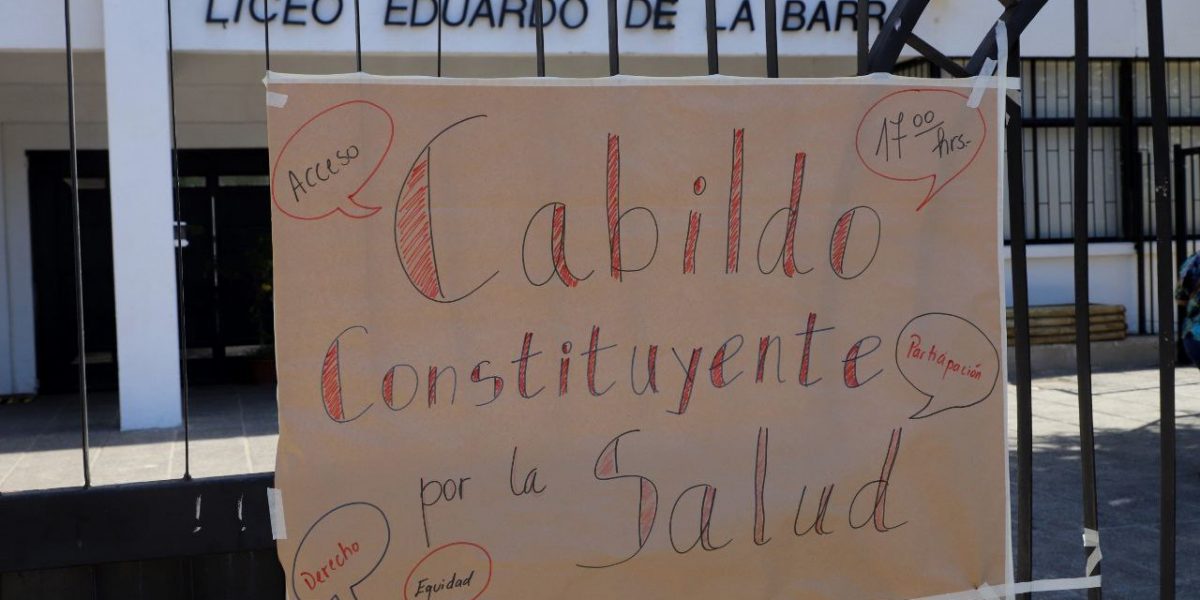 LICEO EDUARDO DE LA BARR
Acceso
17 00 hrs.-
Cabildo
Constituyente
Participación
por la Salud
! !
Derecho
Equidad